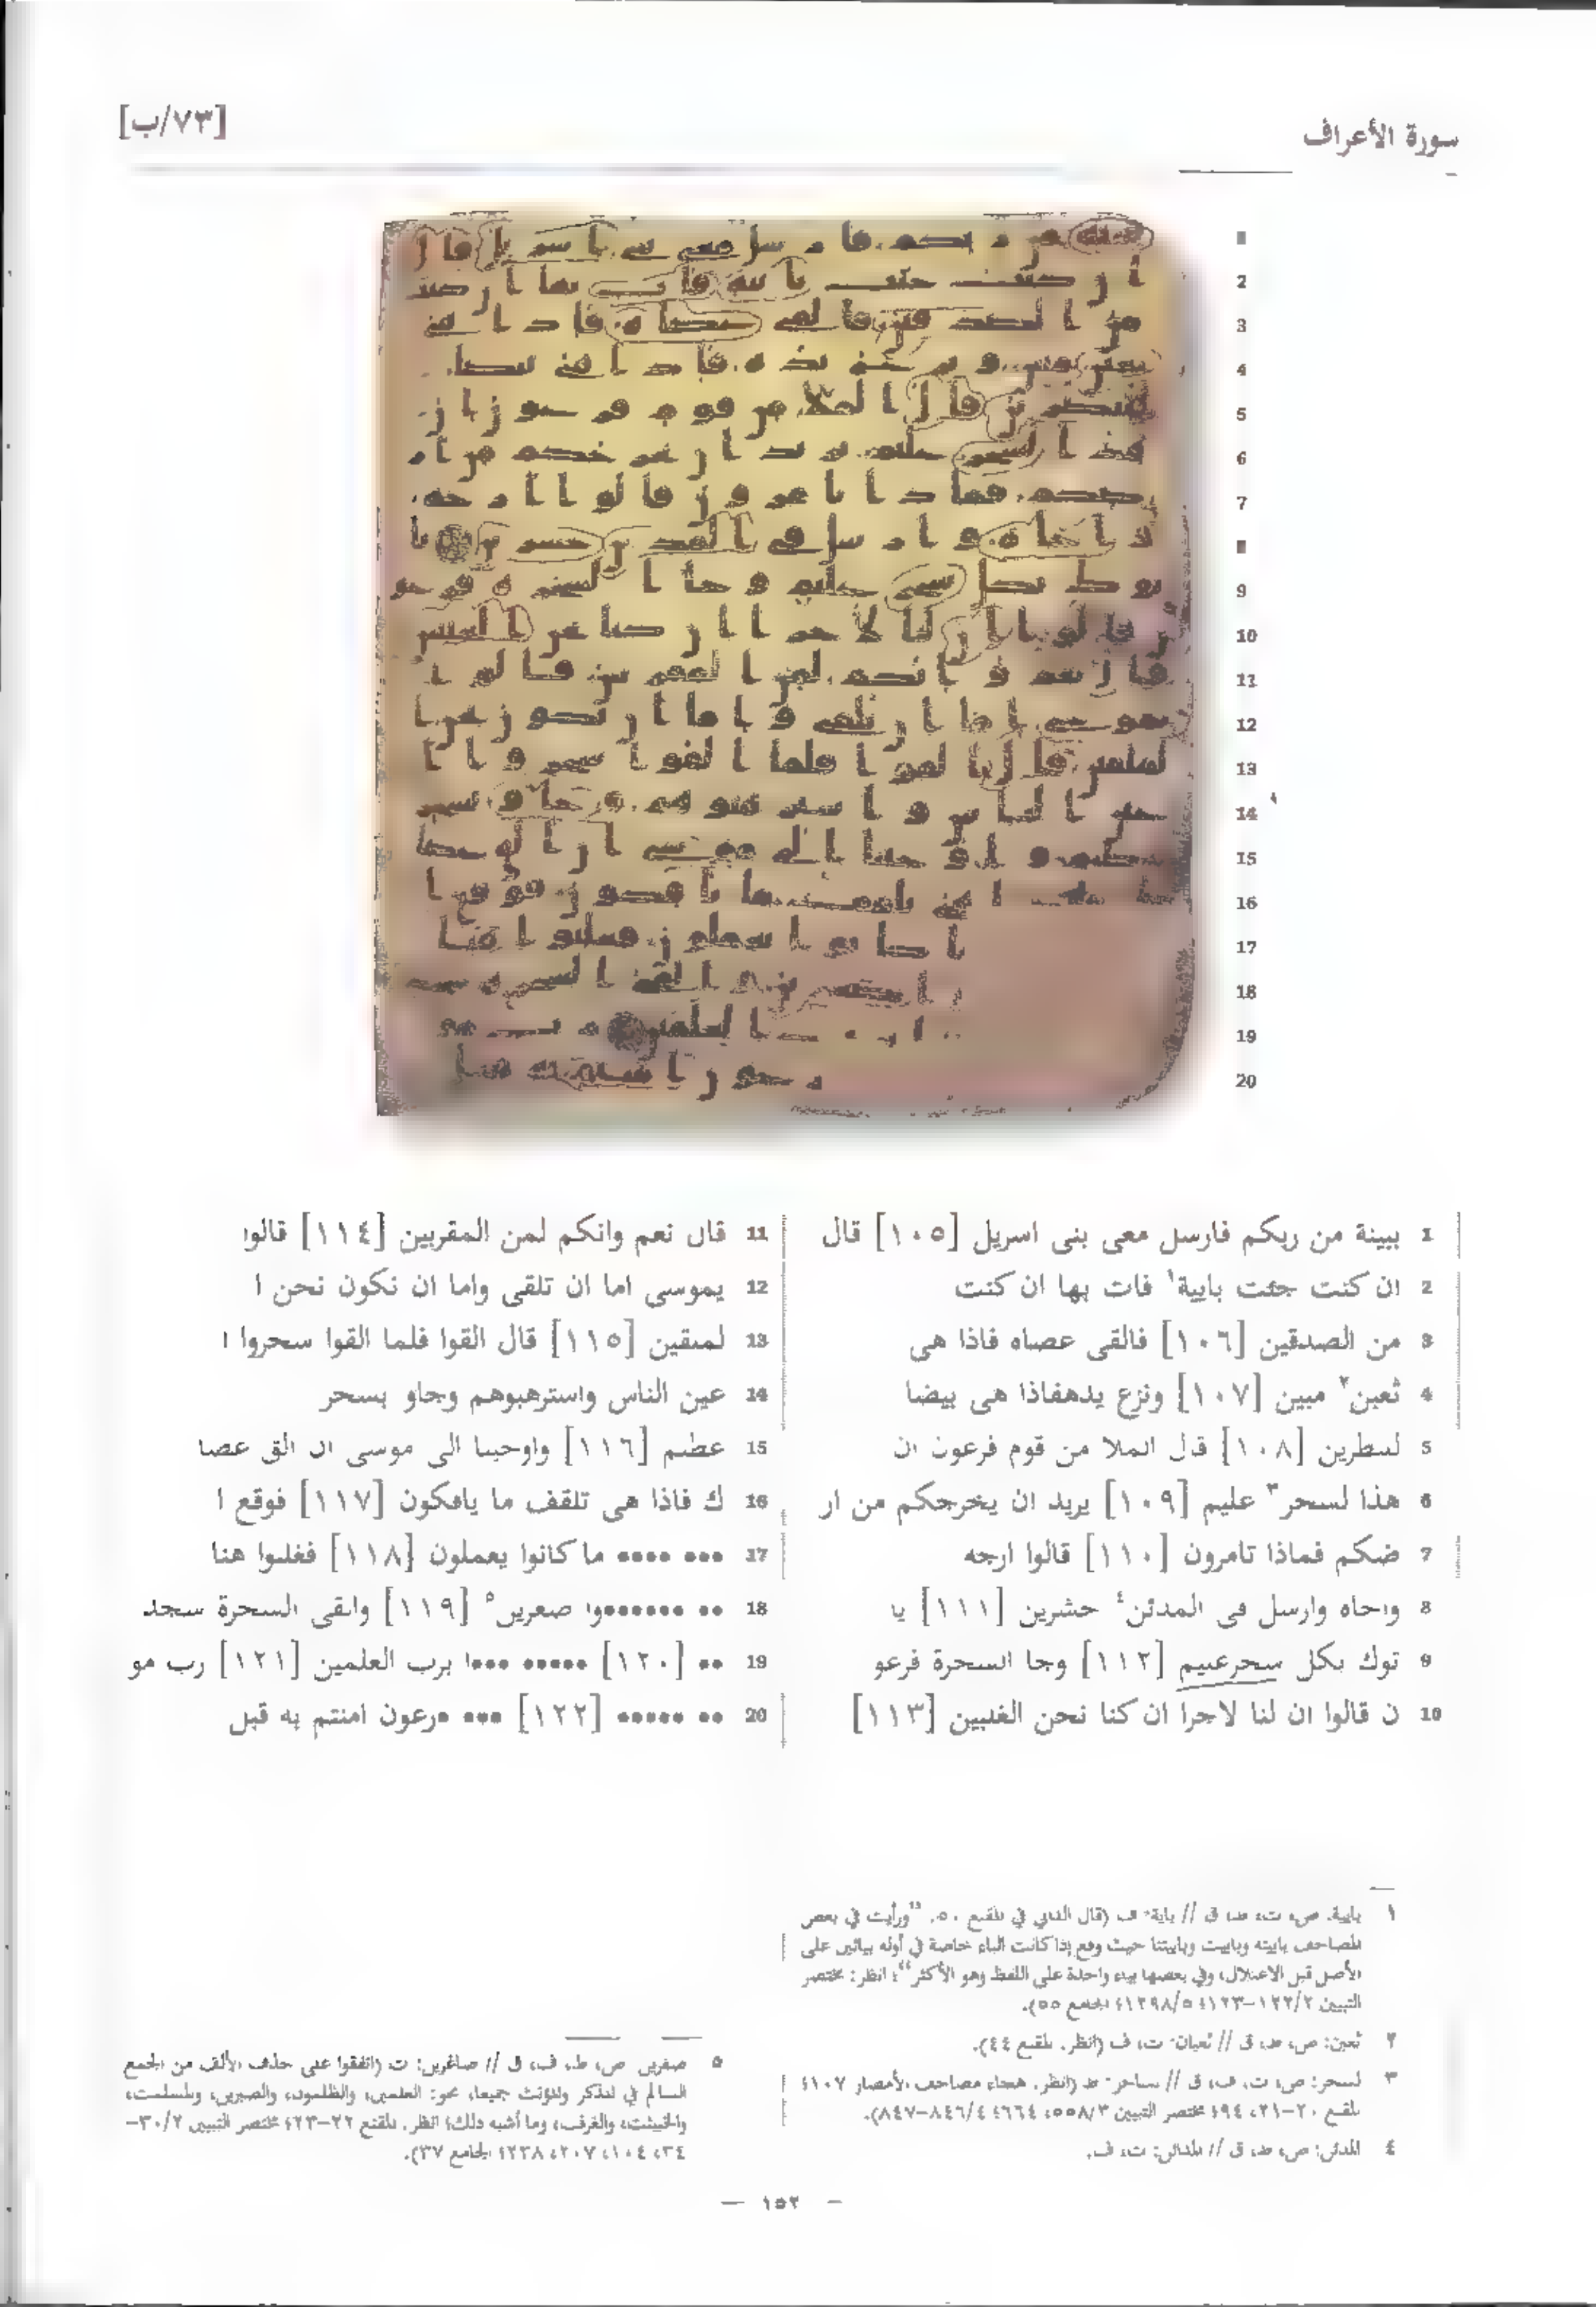 سورة الأعراف
[٧٣/ب]
1 ببينة من ربكم فارسل معى بنى اسريل [١٠٥] قال
2 ان كنت جئت بايية¹ فات بها ان كنت
3 من الصدقين [١٠٦] فالقى عصاه فاذا هى
4 ثعبن² مبين [١٠٧] ونزع يدهفاذا هى بيضا
5 للنظرين [١٠٨] قال الملا من قوم فرعون ان
6 هذا لسحر³ عليم [١٠٩] يريد ان يخرجكم من ار
7 ضكم فماذا تامرون [١١٠] قالوا ارجه
8 واخاه وارسل فى المدئن⁴ حشرين [١١١] يا
9 توك بكل سحرعليم [١١٢] وجا السحرة فرعو
10 ن قالوا ان لنا لاجرا ان كنا نحن الغلبين [١١٣]
11 قال نعم وانكم لمن المقربين [١١٤] قالوا
12 يموسى اما ان تلقى واما ان نكون نحن ا
13 لملقين [١١٥] قال القوا فلما القوا سحروا ا
14 عين الناس واسترهبوهم وجاو بسحر
15 عظيم [١١٦] واوحينا الى موسى ان الق عصا
16 ك فاذا هى تلقف ما يافكون [١١٧] فوقع ا
17 ••• •••• ما كانوا يعملون [١١٨] فغلبوا هنا
18 •• •••••••وا صغرين⁵ [١١٩] والقى السحرة سجد
19 •• [١٢٠] ••••• •••ا برب العلمين [١٢١] رب مو
20 •• ••••• [١٢٢] ••• •رعون امنتم به قبل
١ بايية: ص، ت، ط، ق // باية: ف (قال الداني في المقنع ٥٠: "ورأيت في بعض
المصاحف باييته وباييت وباييتنا حيث وقع إذا كانت الباء خاصة في أوله بيائين على
الأصل قبل الاعتلال، وفي بعضها بياء واحدة على اللفظ وهو الأكثر"؛ انظر: مختصر
التبيين ١٢٢/٢-١٢٣؛ ١٢٩٨/٥؛ الجامع ٥٥).
٢ ثعبن: ص، ط، ق // ثعبان: ت، ف (انظر: المقنع ٤٤).
٣ لسحر: ص، ت، ف، ق // لساحر: ط (انظر: هجاء مصاحف الأمصار ١٠٧؛
المقنع ٢٠-٢١، ٩٤؛ مختصر التبيين ٥٥٨/٣، ٦٦٤؛ ٨٤٦/٤-٨٤٧).
٤ المدئن: ص، ط، ق // المدائن: ت، ف.
٥ صغرين: ص، ط، ف، ق // صاغرين: ت (اتفقوا على حذف الألف من الجمع
السالم في المذكر والمؤنث جميعا، نحو: العلمين، والظلمون، والصبرين، والمسلمت،
والخبيثت، والغرفت، وما أشبه ذلك؛ انظر: المقنع ٢٢-٢٣؛ مختصر التبيين ٣٠/٢-
٣٤، ١٠٤، ٢٠٧، ٢٣٨؛ الجامع ٣٧).
— ١٥٢ —